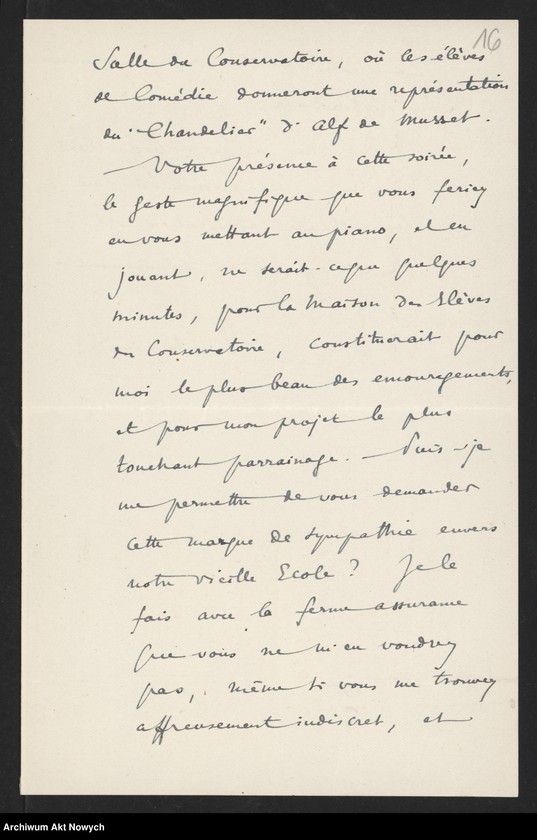 16
Salle du Conservatoire, où les élèves
de Comédie donneront une représentation
du "Chandelier" d' Alf de Musset.
— Votre présence à cette soirée,
le geste magnifique que vous feriez
en vous mettant au piano, et en
jouant, ne serait-ce que quelques
minutes, pour la Maison des Elèves
du Conservatoire, constituerait pour
moi le plus beau des encouragements,
et pour mon projet le plus
touchant parrainage. — Puis-je
me permettre de vous demander
cette marque de sympathie envers
notre vieille Ecole ? Je le
fais avec la ferme assurance
que vous ne m'en voudrez
pas, même si vous me trouvez
affreusement indiscret, et
Archiwum Akt Nowych